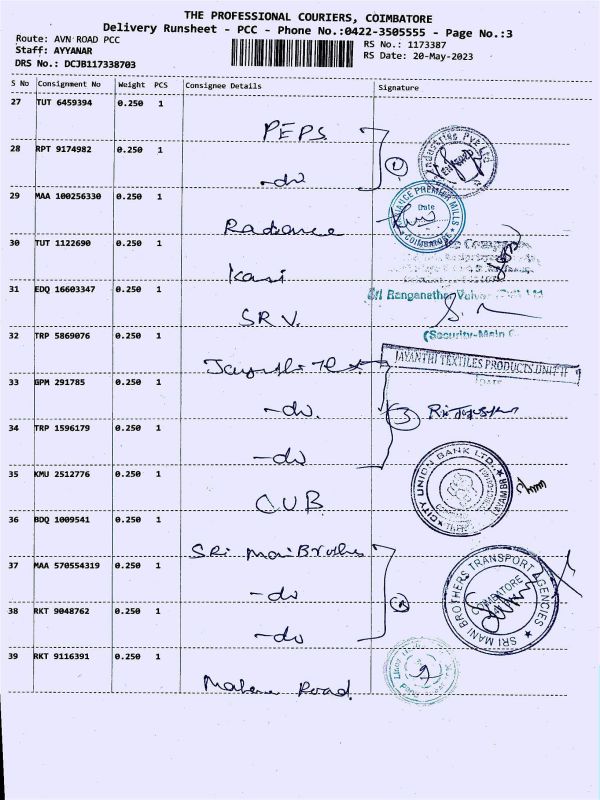 THE PROFESSIONAL COURIERS, COIMBATORE
Delivery Runsheet - PCC - Phone No.:0422-3505555 - Page No.:3
Route: AVN ROAD PCC
RS No.: 1173387
Staff: AYYANAR
RS Date: 20-May-2023
DRS No.: DCJB117338703
S No Consignment No Weight PCS Consignee Details Signature
27 TUT 6459394 0.250 1
PEPS
28 RPT 9174982 0.250 1
-do
Industries Pvt Ltd
29 MAA 100256330 0.250 1
Radiance
RADIANCE PREMIER MILLS
Date
COIMBATORE
30 TUT 1122690 0.250 1
Kasi
31 EDQ 16603347 0.250 1
SRV.
Sri Ranganathar
(Security-Main
32 TRP 5869076 0.250 1
Jayanthi Tex
JAYANTHI TEXTILES PRODUCTS UNIT II
DATE
33 GPM 291785 0.250 1
-do.
3
34 TRP 1596179 0.250 1
-do
35 KMU 2512776 0.250 1
CUB
CITY UNION BANK LTD.
36 BDQ 1009541 0.250 1
SRi Mani Brothers
37 MAA 570554319 0.250 1
-do
38 RKT 9048762 0.250 1
-do
SRI MANI BROTHERS TRANSPORT AGENCIES
COIMBATORE
39 RKT 9116391 0.250 1
Road